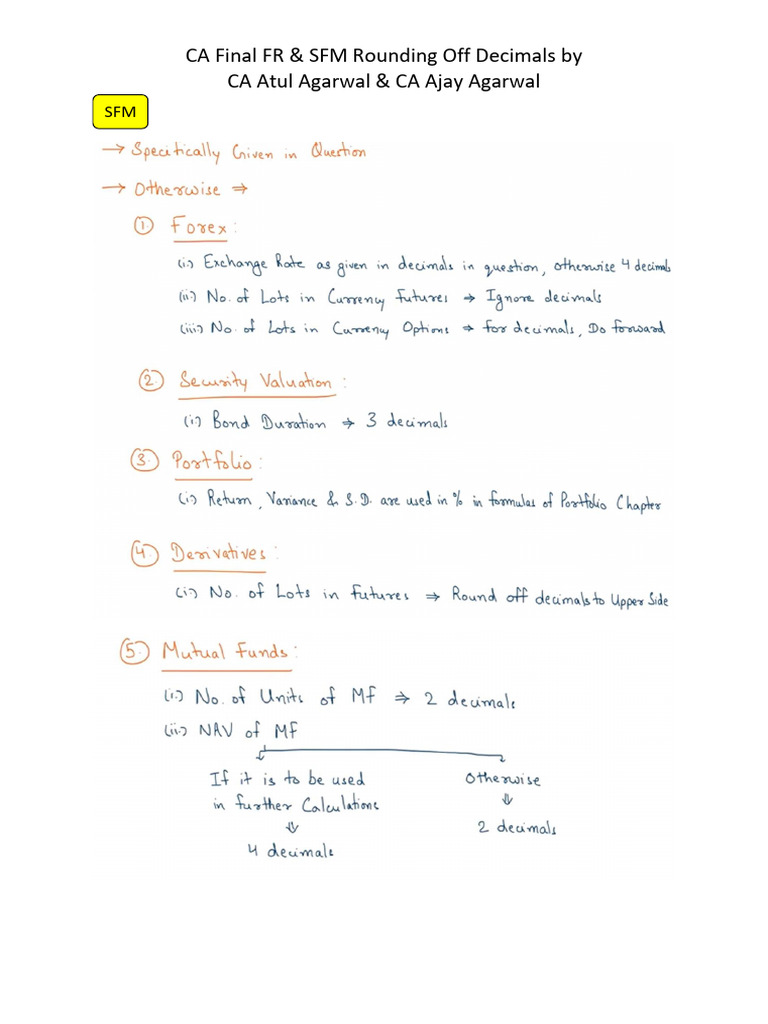 CA Final FR & SFM Rounding Off Decimals by
CA Atul Agarwal & CA Ajay Agarwal
SFM
→ Specifically Given in Question
→ Otherwise ⇒
① Forex:
(i) Exchange Rate as given in decimals in question, otherwise 4 decimals
(ii) No. of Lots in Currency Futures → Ignore decimals
(iii) No. of Lots in Currency Options → for decimals, Do forward
② Security Valuation:
(i) Bond Duration → 3 decimals
③ Portfolio:
(i) Return, Variance & S.D. are used in % in formulas of Portfolio Chapter
④ Derivatives:
(i) No. of Lots in futures ⇒ Round off decimals to Upper Side
⑤ Mutual Funds:
(i) No. of Units of MF ⇒ 2 decimals
(ii) NAV of MF
If it is to be used Otherwise
in further Calculations ⇓
⇓ 2 decimals
4 decimals